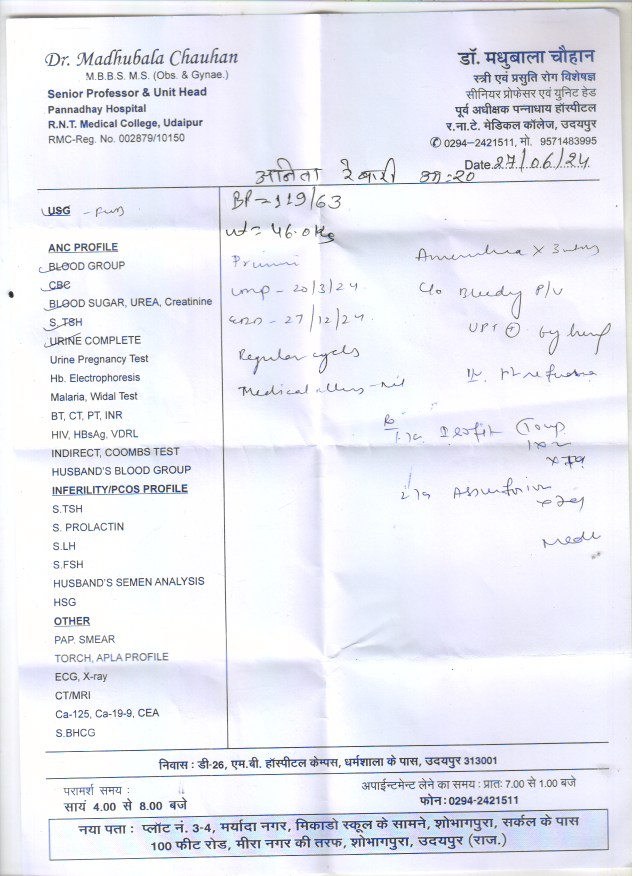 Dr. Madhubala Chauhan
M.B.B.S. M.S. (Obs. & Gynae.)
Senior Professor & Unit Head
Pannadhay Hospital
R.N.T. Medical College, Udaipur
RMC-Reg. No. 002879/10150
डॉ. मधुबाला चौहान
स्त्री एवं प्रसुति रोग विशेषज्ञ
सीनियर प्रोफेसर एवं युनिट हेड
पूर्व अधीक्षक पन्नाधाय हॉस्पीटल
र.ना.टे. मेडिकल कॉलेज, उदयपुर
✆ 0294-2421511, मो. 9571483995
Date 27/06/24
अनिता रेबारी उम्र:20
USG
ANC PROFILE
BLOOD GROUP
CBC
BLOOD SUGAR, UREA, Creatinine
S.TSH
URINE COMPLETE
Urine Pregnancy Test
Hb. Electrophoresis
Malaria, Widal Test
BT, CT, PT, INR
HIV, HBsAg, VDRL
INDIRECT, COOMBS TEST
HUSBAND'S BLOOD GROUP
INFERILITY/PCOS PROFILE
S.TSH
S. PROLACTIN
S.LH
S.FSH
HUSBAND'S SEMEN ANALYSIS
HSG
OTHER
PAP. SMEAR
TORCH, APLA PROFILE
ECG, X-ray
CT/MRI
Ca-125, Ca-19-9, CEA
S.BHCG
BP=119/63
wt= 46.0 kg
Primi
LMP - 20/3/24
EDD - 27/12/24
Regular cycles
Medical illness - nil
C/o Bleeding P/V
UPT ⊕
निवास : डी-26, एम.बी. हॉस्पीटल केम्पस, धर्मशाला के पास, उदयपुर 313001
परामर्श समय :
सायं 4.00 से 8.00 बजे
अपाईन्टमेन्ट लेने का समय : प्रातः 7.00 से 1.00 बजे
फोन: 0294-2421511
नया पता : प्लॉट नं. 3-4, मर्यादा नगर, मिकाडो स्कूल के सामने, शोभागपुरा, सर्कल के पास
100 फीट रोड, मीरा नगर की तरफ, शोभागपुरा, उदयपुर (राज.)